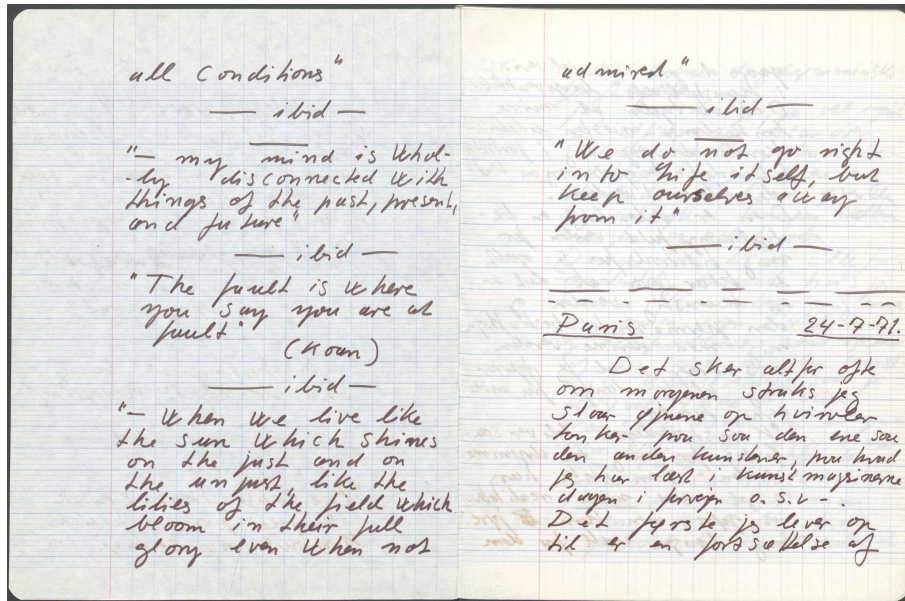 all Conditions"
— ibid —
"— my mind is whol-
-ly disconnected with
things of the past, present,
and future"
— ibid —
"The fault is where
you say you are at
fault"
(Koan)
— ibid —
"— When we live like
the sun which shines
on the just and on
the unjust, like the
lilies of the field which
bloom in their full
glory even when not
admired"
— ibid —
"We do not go right
into life itself, but
keep ourselves away
from it"
— ibid —
Paris 24-7-71.
Det sker altfor ofte
om morgenen straks jeg
slaar øjnene op hvirvler
tanker paa saa den ene saa
den anden kunstner, paa hvad
jeg har læst i kunstmagasinerne
dagen i forvejen o.s.v -
Det første jeg lever op
til er en fortsættelse af